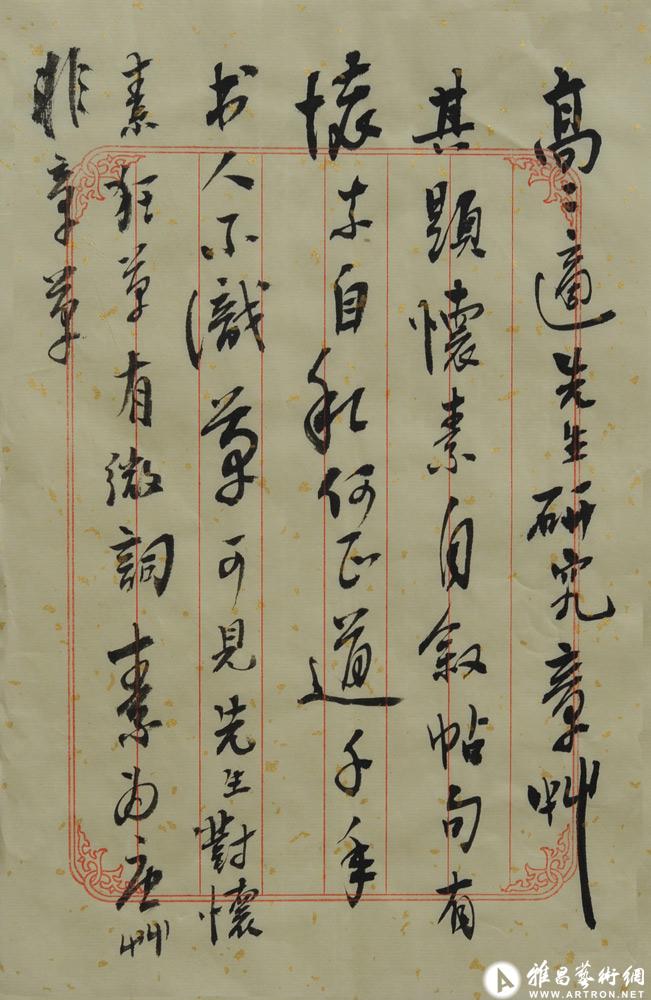 高二適先生研究章艸
其題懷素自敘帖句有
懷素自叙何足道千年
书人不識草可見先生對懷
素狂草有微詞素为唐艸
非章草
雅昌藝術網
WWW.ARTRON.NET